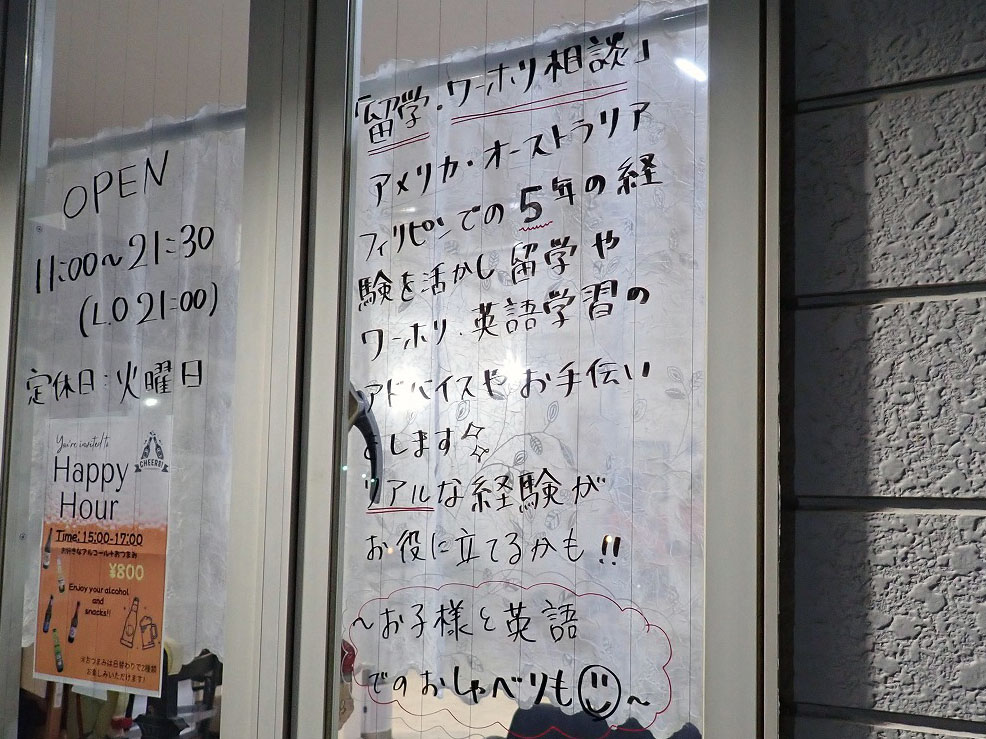 OPEN
11:00~21:30
(L.O 21:00)
定休日:火曜日
You're invited to
CHEERS!
Happy
Hour
Time: 15:00-17:00
お好きなアルコール+おつまみ
¥800
Enjoy your alcohol
and
snacks!!
※おつまみは日替わりで2種類
お楽しみいただけます!
「留学・ワーホリ相談」
アメリカ・オーストラリア
フィリピンでの5年の経
験を活かし留学や
ワーホリ・英語学習の
アドバイスやお手伝い
します
リアルな経験が
お役に立てるかも!!
~お子様と英語
でのおしゃべりも~